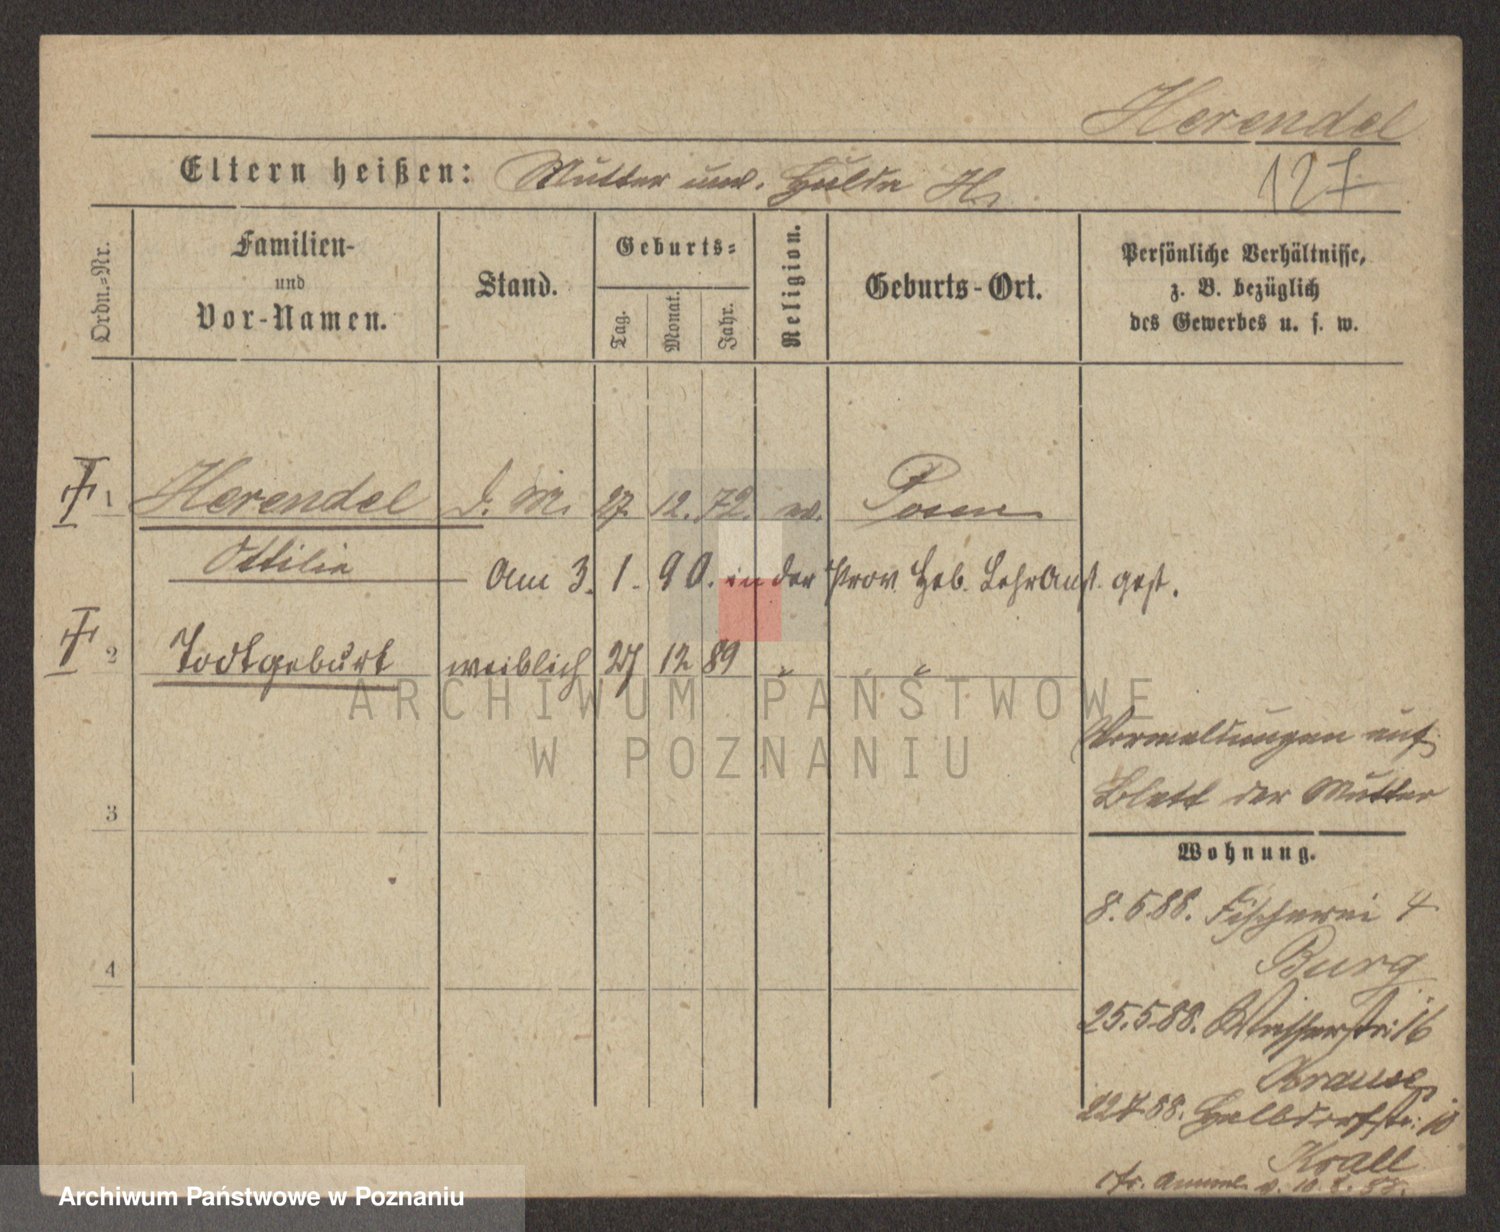 Herendel
Eltern heißen: Mutter unv. Hulda H.
127
Ordn.-Nr.
Familien-
und
Vor-Namen.
Stand.
Geburts-
Tag.
Monat.
Jahr.
Religion.
Geburts-Ort.
Persönliche Verhältnisse,
z. B. bezüglich
des Gewerbes u. s. w.
1 Herendel d. M. 27. 12. 72. ev. Posen
Ottilie Am 3. 1. 90. in der Prov. Heb. LehrAnst. gest.
2 Todtgeburt weiblich 27 12 89 " "
ARCHIWUM PAŃSTWOWE
W POZNANIU
Vermeldungen auf
Blatt der Mutter
3
Wohnung.
8.5.88. Fischerei 4
Burg
4
25.5.88. 16
Krause
22.7.88. Halbdorfstr. 10
Krall
v. 10.8.88.
Archiwum Państwowe w Poznaniu